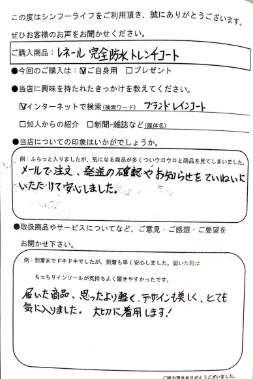 この度はシンフーライフをご利用頂き、誠にありがとうございます。
ぜひお客様のお声をお聞かせください。
ご購入商品：レネール 完全防水トレンチコート
●今回のご購入は：☑ご自身用 □プレゼント
●当店に興味を持たれたきっかけを教えてください。
☑インターネットで検索(検索ワード) ブランドレインコート
□知人からの紹介 □新聞・雑誌など(媒体名)
●当店についての印象はいかがでしょうか。
例：ふらっと入りましたが、気になる商品が多くついウロウロと商品を見てしまいました。
メールで注文、発送の確認やお知らせをていねいに
いただけて安心しました。
●取扱商品やサービスについてなど、ご意見・ご感想・ご要望を
お聞かせ下さい。
例：到着までドキドキでしたが、到着も早く安心しました。届いた靴は
もっちりインソールが気持ちよく履きやすかったです。
届いた商品、思ったより軽く、デザインも美しく、とても
気に入りました。大切に着用します！
ご協力頂きありがとうございました。